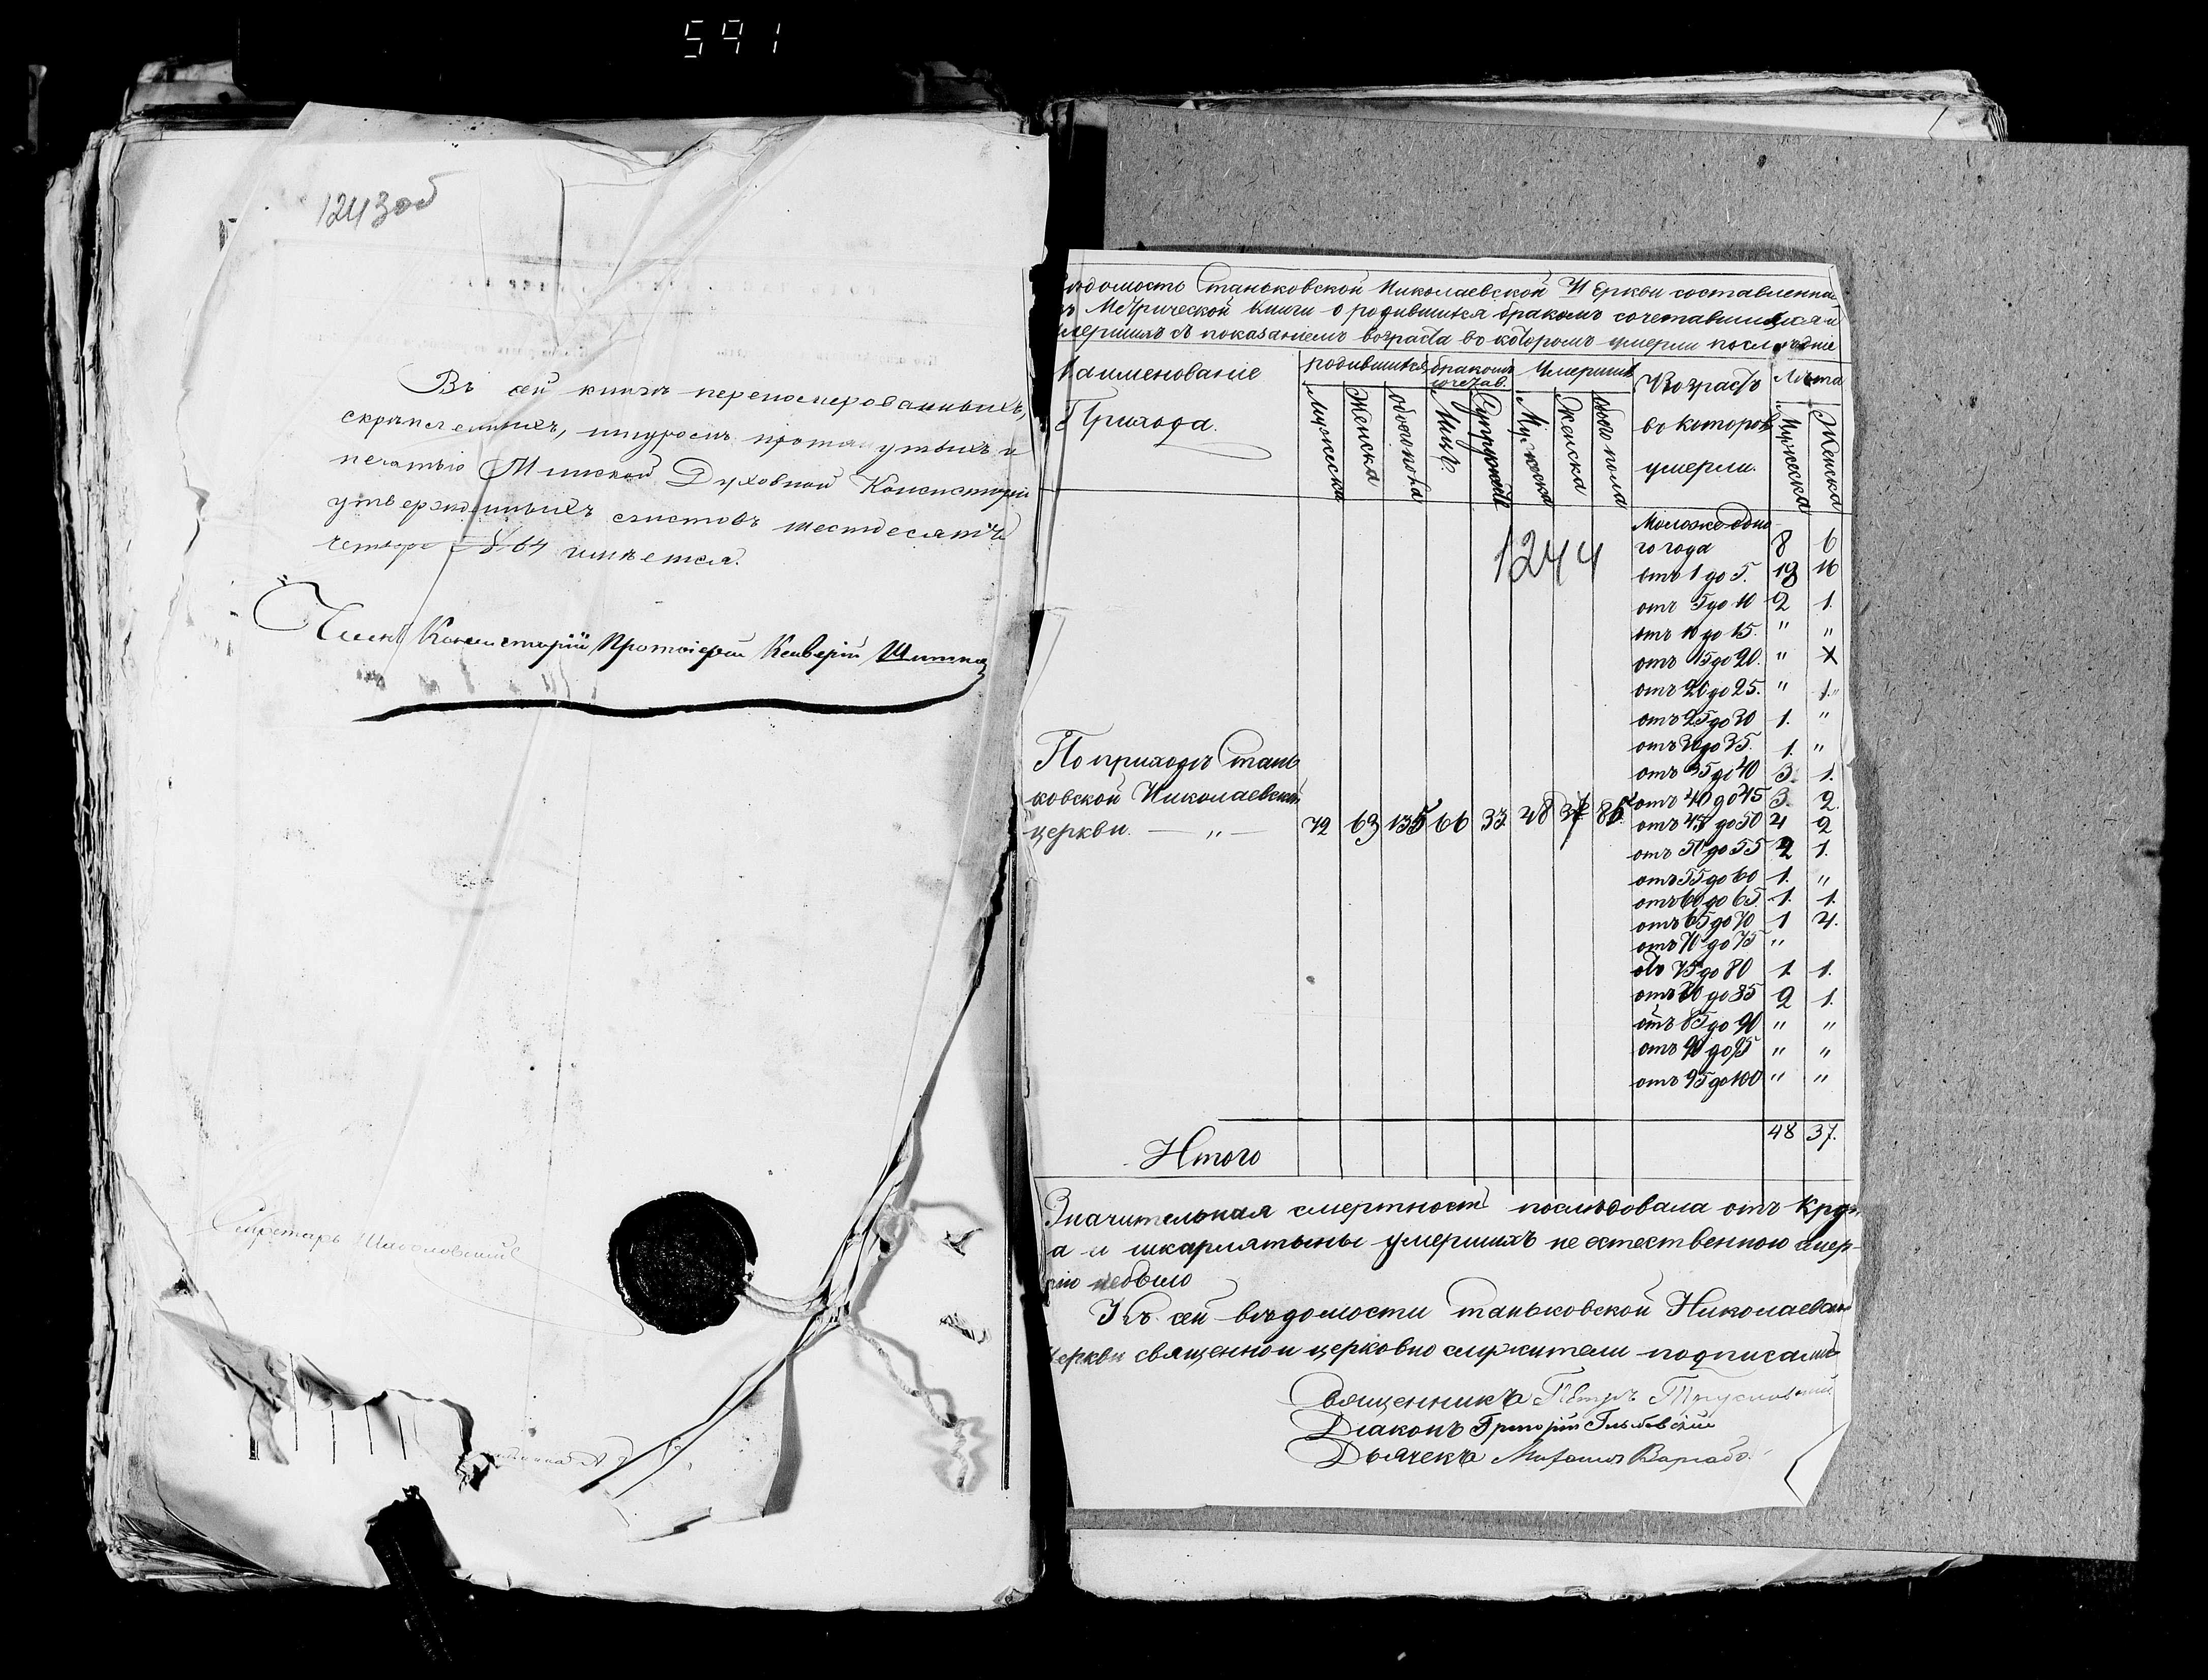 591
1243об
Въ сей книгѣ перенумерованныхъ,
скрѣпленныхъ, шнуромъ протянутыхъ и
печатью Минской Духовной Консисторіи
утвержденныхъ листовъ шестьдесятъ
четыре 64 имѣется.
Членъ Консисторіи Протоіерей
Секретарь
Вѣдомость Станьковской Николаевской Церкви составленна
Метрической Книги о родившихся бракомъ сочетавшихся и
умершихъ съ показаніемъ возраста въ которомъ умерли послѣдніе
Наименованіе Прихода.
родившихся
Мужеска Женска обоего пола
бракомъ сочетав.
Лицъ. Супружествъ
Умершихъ
Му-жеска Женска обоего пола
Возрастъ въ которомъ умерли.
Лѣта
Мужеска Женска
1244
Моложе одно
го года 8 6
отъ 1 до 5. 18 16
отъ 5 до 10 2 1.
отъ 10 до 15. " "
отъ 15 до 20. "
отъ 20 до 25. " 1.
отъ 25 до 30 1. "
отъ 30 до 35. 1. "
отъ 35 до 40 3. 1.
отъ 40 до 45 3. 2.
отъ 45 до 50 4 2
отъ 50 до 55 2 1.
отъ 55 до 60 1. "
отъ 60 до 65. 1. 1.
отъ 65 до 70 1 4.
отъ 70 до 75 "
отъ 75 до 80 1. 1.
отъ 80 до 85 2 1.
отъ 85 до 90 " "
отъ 90 до 95 " "
отъ 95 до 100 " "
По приходу Стань
ковской Николаевской
церкви. — " — 72 63 135 66 33 48 37 85
Итого 48 37.
Значительная смертность послѣдовала отъ Круп
а и шкарлятыны умершихъ не естественною смер-
тію небыло
Къ сей вѣдомости Станьковской Николаевской
Церкви священно и церковно служители подписались
Священникъ Петръ
Діаконъ Григорій
Дьячекъ Михаилъ